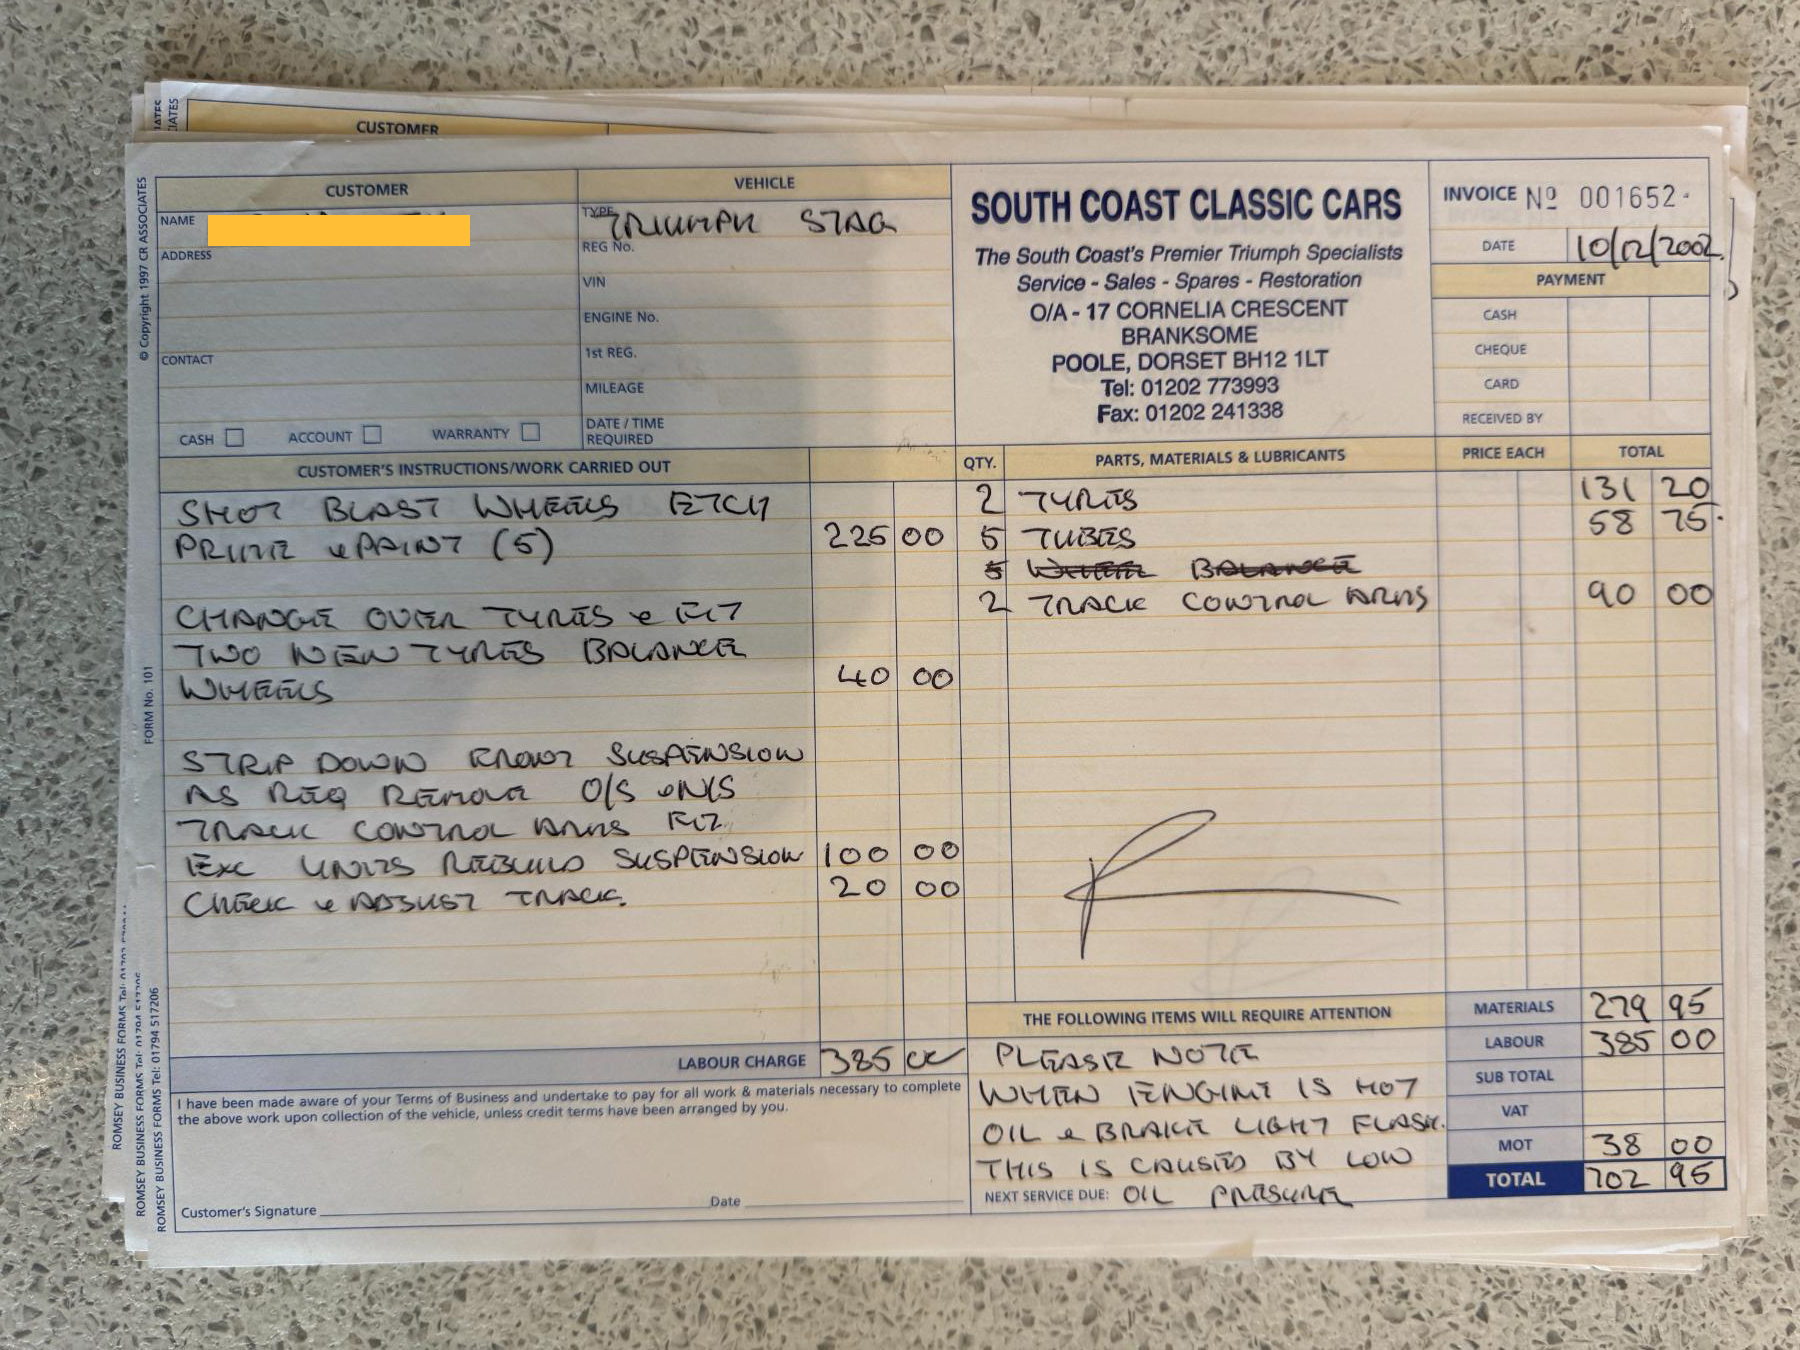 CUSTOMER
IATES
CUSTOMER
NAME
ADDRESS
CONTACT
CASH ACCOUNT WARRANTY
VEHICLE
TYPE TRIUMPH STAG
REG No.
VIN
ENGINE No.
1st REG.
MILEAGE
DATE / TIME
REQUIRED
SOUTH COAST CLASSIC CARS
The South Coast's Premier Triumph Specialists
Service - Sales - Spares - Restoration
O/A - 17 CORNELIA CRESCENT
BRANKSOME
POOLE, DORSET BH12 1LT
Tel: 01202 773993
Fax: 01202 241338
INVOICE Nº 001652
DATE 10/12/2002
PAYMENT
CASH
CHEQUE
CARD
RECEIVED BY
CUSTOMER'S INSTRUCTIONS/WORK CARRIED OUT
SHOT BLAST WHEELS ETCH
PRIME & PAINT (5) 225 00
CHANGE OVER TYRES & FIT
TWO NEW TYRES BALANCE
WHEELS 40 00
STRIP DOWN FRONT SUSPENSION
AS REQ REMOVE O/S & N/S
TRACK CONTROL ARMS FIT
EXC UNITS REBUILD SUSPENSION 100 00
CHECK & ADJUST TRACK. 20 00
LABOUR CHARGE 385 00
QTY. PARTS, MATERIALS & LUBRICANTS PRICE EACH TOTAL
2 TYRES 131 20
5 TUBES 58 75
5 WHEEL BALANCE
2 TRACK CONTROL ARMS 90 00
THE FOLLOWING ITEMS WILL REQUIRE ATTENTION
PLEASE NOTE
WHEN ENGINE IS HOT
OIL & BRAKE LIGHT FLASH.
THIS IS CAUSED BY LOW
NEXT SERVICE DUE: OIL PRESURE
MATERIALS 279 95
LABOUR 385 00
SUB TOTAL
VAT
MOT 38 00
TOTAL 702 95
I have been made aware of your Terms of Business and undertake to pay for all work & materials necessary to complete
the above work upon collection of the vehicle, unless credit terms have been arranged by you.
Customer's Signature Date
© Copyright 1997 CR ASSOCIATES
FORM No. 101
ROMSEY BUSINESS FORMS Tel: 01794 517206
ROMSEY BUSINESS FORMS Tel: 01794 517206
ROMSEY BUSINESS FORMS Tel: